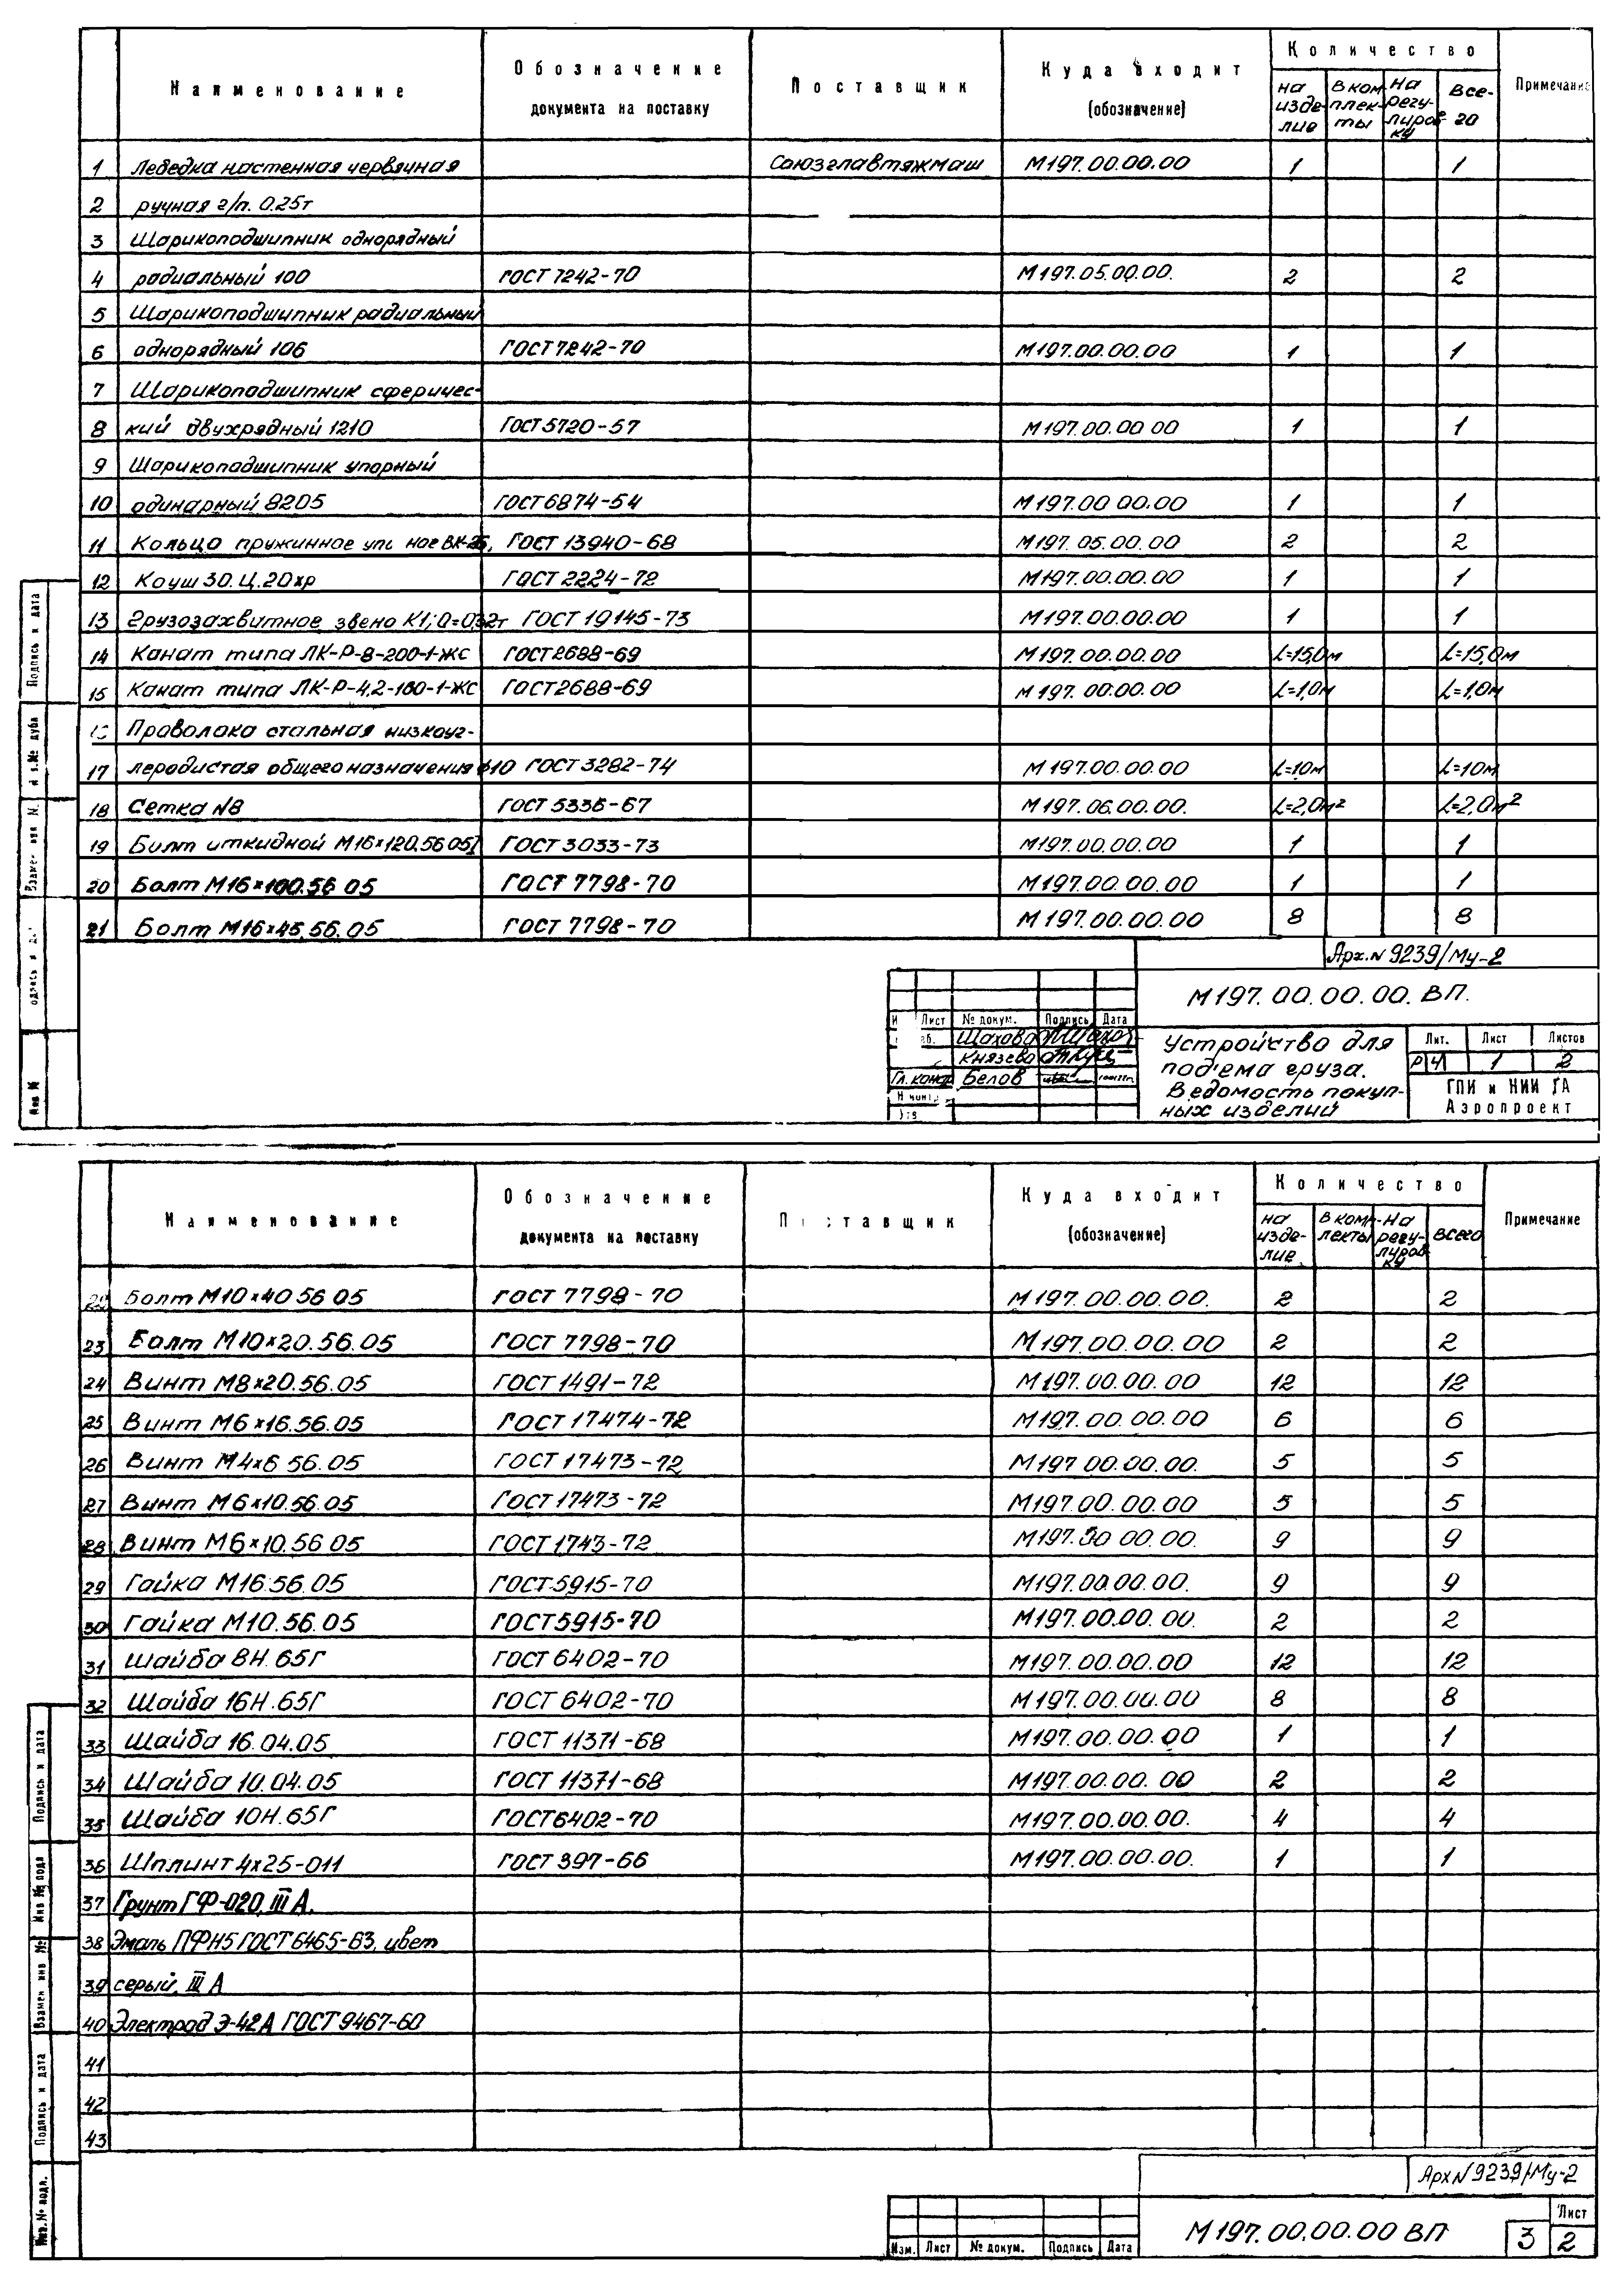 Наименование Обозначение документа на поставку Поставщик Куда входит (обозначение) Количество Примечание
на изделие В комплекты На регулировку Всего
1 Лебедка настенная червячная Союзглавтяжмаш М197.00.00.00 1 1
2 ручная г/п. 0.25т
3 Шарикоподшипник однорядный
4 радиальный 100 ГОСТ 7242-70 М197.05.00.00. 2 2
5 Шарикоподшипник радиальный
6 однорядный 106 ГОСТ 7242-70 М197.00.00.00 1 1
7 Шарикоподшипник сферичес-
8 кий двухрядный 1210 ГОСТ 5720-57 М197.00.00 00 1 1
9 Шарикоподшипник упорный
10 одинарный 8205 ГОСТ 6874-54 М197.00 00.00 1 1
11 Кольцо пружинное ГОСТ 13940-68 М197.05.00.00 2 2
12 Коуш 30.Ц.20хр ГОСТ 2224-72 М197.00.00.00 1 1
13 Грузозахвитное звено К1; Q=0,32т ГОСТ 19145-73 М197.00.00.00 1 1
14 Канат типа ЛК-Р-8-200-1-ЖС ГОСТ 2688-69 М197.00.00.00 L=15,0м L=15,0м
15 Канат типа ЛК-Р-4,2-160-1-ЖС ГОСТ 2688-69 М197.00.00.00 L=1,0м L=1,0м
Проволока стальная низкоуг-
17 леродистая общего назначения ф10 ГОСТ 3282-74 М197.00.00.00 L=10м L=10м
18 Сетка N8 ГОСТ 5336-67 М197.06.00.00. L=2,0м² L=2,0м²
19 Болт откидной М16×120.56 05 ГОСТ 3033-73 М197.00.00.00 1 1
20 Болт М16×100.56 05 ГОСТ 7798-70 М197.00.00.00 1 1
21 Болт М16×45.56.05 ГОСТ 7798-70 М197.00.00.00 8 8
Подпись и дата
Арх.N 9239/Му-2
М197.00.00.00.ВП.
Лист № докум. Подпись Дата
Шахова
Князева
Гл. констр Белов
Устройство для
под'ема груза.
Ведомость покуп-
ных изделий
Лит. Лист Листов
Р Ч 1 2
ГПИ и НИИ ГА
Аэропроект
Наименование Обозначение документа на поставку Поставщик Куда входит (обозначение) Количество Примечание
на изделие В комплекты На регулировку Всего
22 Болт М10×40 56 05 ГОСТ 7798-70 М197.00.00.00. 2 2
23 Болт М10×20.56.05 ГОСТ 7798-70 М197.00.00.00 2 2
24 Винт М8×20.56.05 ГОСТ 1491-72 М197.00.00.00 12 12
25 Винт М6×16.56.05 ГОСТ 17474-72 М197.00.00.00 6 6
26 Винт М4×6 56.05 ГОСТ 17473-72 М197 00.00.00. 5 5
27 Винт М6×10.56.05 ГОСТ 17473-72 М197.00.00.00 5 5
28 Винт М6×10.56 05 ГОСТ 1743-72 М197.00 00.00. 9 9
29 Гайка М16.56.05 ГОСТ 5915-70 М197.00.00.00. 9 9
30 Гайка М10.56.05 ГОСТ 5915-70 М197.00.00.00. 2 2
31 Шайба 8Н.65Г ГОСТ 6402-70 М197.00.00.00 12 12
32 Шайба 16Н.65Г ГОСТ 6402-70 М197.00.00.00 8 8
33 Шайба 16.04.05 ГОСТ 11371-68 М197.00.00.00 1 1
34 Шайба 10.04.05 ГОСТ 11371-68 М197.00.00.00 2 2
35 Шайба 10Н.65Г ГОСТ 6402-70 М197.00.00.00. 4 4
36 Шплинт 4×25-011 ГОСТ 397-66 М197.00.00.00. 1 1
37 Грунт ГФ-020, III А.
38 Эмаль ПФ115 ГОСТ 6465-63, цвет
39 серый, III А
40 Электрод Э-42А ГОСТ 9467-60
41
42
43
Подпись и дата
Взамен инв №
Подпись и дата
Инв.№ подл.
Арх N 9239/Му-2
Изм. Лист № докум. Подпись Дата
М197.00.00.00 ВП
3
Лист
2